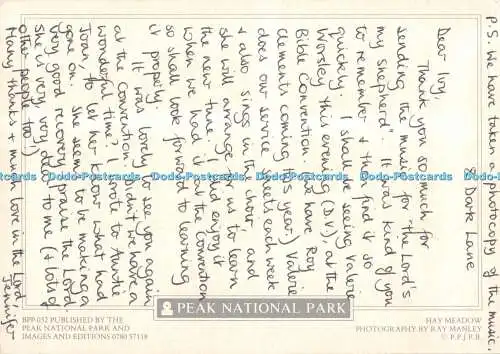 P.S. We have taken a photocopy of the music.
8 Dark Lane
Dear Ivy,
Thank you so much for
sending the music for "The Lord's
my shepherd". It was kind of you
to remember + to find it so
quickly. I shall be seeing Valerie
Worsley this evening (D.V.), at the
Bible Convention. (We have Roy
Clements coming this year.) Valerie
does our service sheets each week
+ also sings in the choir, and
she will arrange for us to learn
the new tune. I did enjoy it
when we had it at the Convention
so shall look forward to learning
it properly.
It was lovely to see you again
at the Convention. Didn't we have a
wonderful time? I wrote to Auntie
Joan, to let her know what had
gone on. She seems to be making a
very good recovery, praise the Lord.
she is very, very dear to me (+ lots of
other people too!)
Many thanks + much love in the Lord
Jennifer
PEAK NATIONAL PARK
BPP 032 PUBLISHED BY THE
PEAK NATIONAL PARK AND
IMAGES AND EDITIONS 0780 57118
HAY MEADOW
PHOTOGRAPHY BY RAY MANLEY
© P.P.J.P.B.
Dodo-Postcards